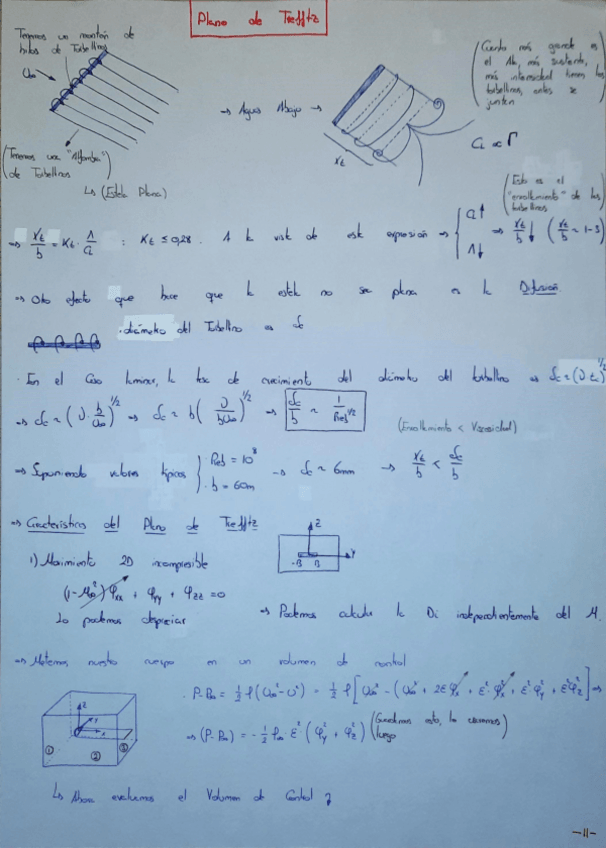 Plano de Trefftz
Tenemos un montón de
hilos de Torbellinos
U∞
(Tenemos una "Alfombra"
de Torbellinos)
↳ (Estela Plana)
→ Aguas Abajo →
Xt
(Cuanto más grande es
el Ala, más sustenta,
más intensidad tienen los
torbellinos, antes se
juntan)
CL ∝ Γ
(Esto es el
"enrollamiento" de los
torbellinos)
⇒ Xt/b = Kt · Λ/CL : Kt ≤ 0,28. A la vista de esta expresión ⇒ { CL↑ Λ↓ ⇒ Xt/b ↓ (Xt/b ≈ 1-3)
⇒ Otro efecto que hace que la estela no sea plana es la Difusión.
· diámetro del Torbellino es δc
· En el Caso laminar, la tasa de crecimiento del diámetro del torbellino ⇒ δc ~ (ν tc)^1/2
⇒ δc ~ (ν · b/U∞)^1/2 ⇒ δc ~ b (ν/bU∞)^1/2 ⇒ δc/b ~ 1/Reb^1/2
(Enrollamiento < Viscosidad)
⇒ Suponiendo valores típicos } Reb = 10^8 · b = 60m → δc ~ 6mm → Xt/b < δc/b
⇒ Características del Plano de Trefftz
Z
Y
-B B
1) Movimiento 2D incompresible
(1-M∞²) φxx + φyy + φzz = 0
Lo podemos despreciar
⇒ Podemos calcular la Di independientemente del M.
⇒ Metemos nuestro cuerpo en un volumen de control
· P-P∞ = 1/2 ρ (U∞² - U²) = 1/2 ρ [U∞² - (U∞² + 2εφx + ε²φx² + ε²φy² + ε²φz²)] ⇒
⇒ (P-P∞) = -1/2 ρ∞ · ε² (φy² + φz²) (Guardamos esto, lo usaremos luego)
z
y
x
① ② ③
↳ Ahora evaluamos el Volumen de Control
-11-